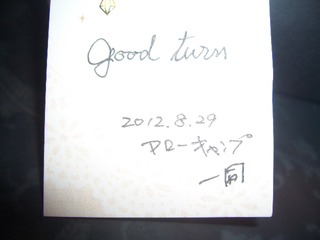 good turn
2012.8.29
アローキャンプ
一同